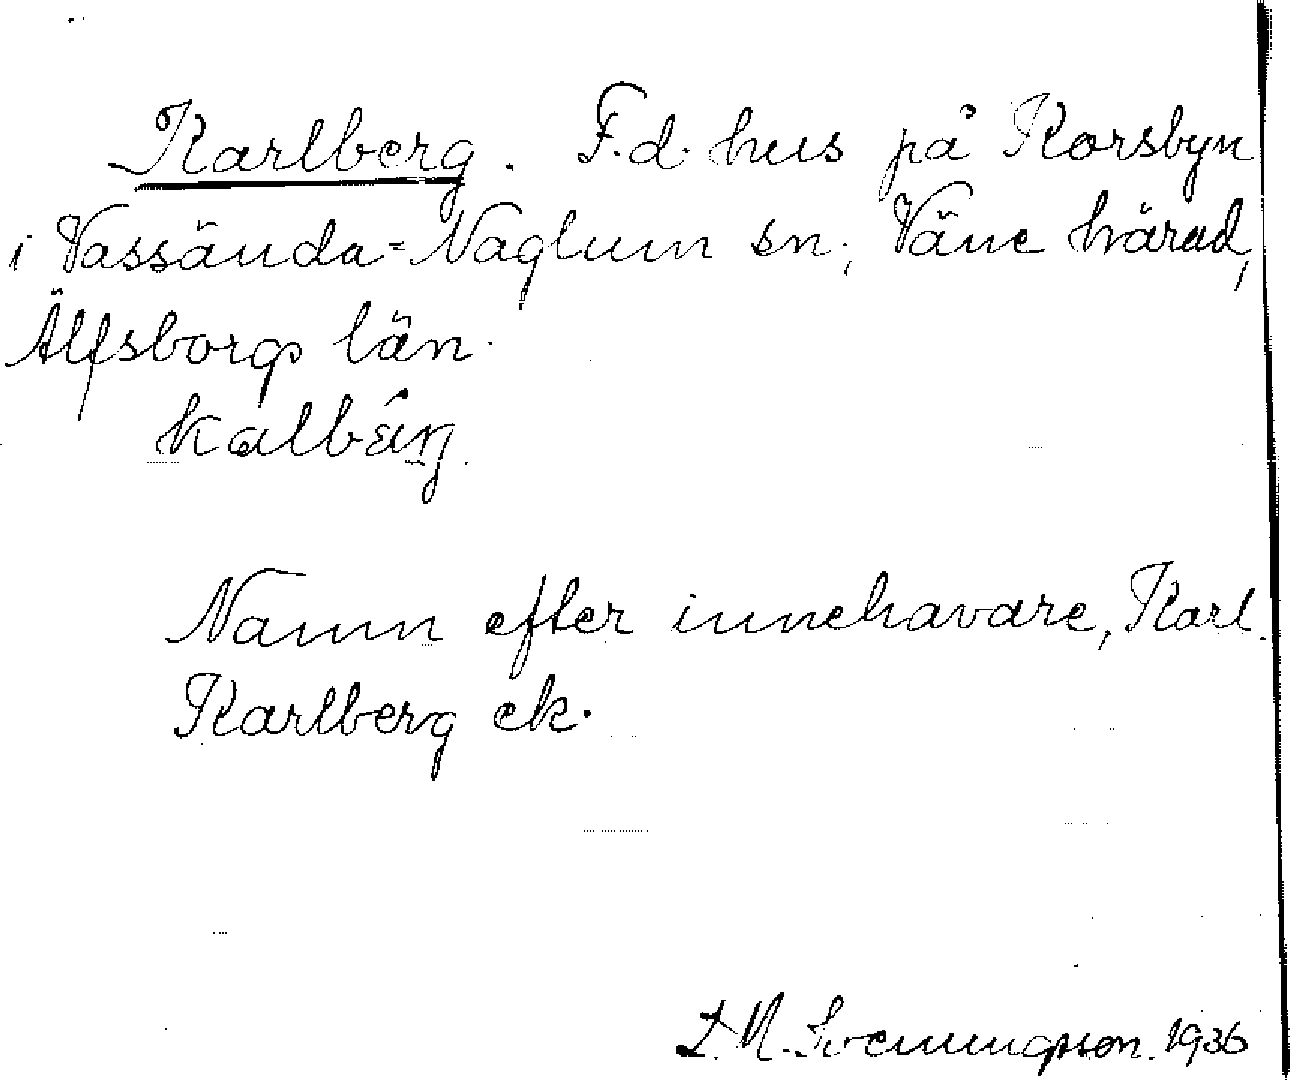 Karlberg. F.d. hus på Korsbyn
i Vassända=Naglum sn, Väne härad,
Älfsborgs län.
Namn efter innehavare, Karl
Karlberg ck.
1936